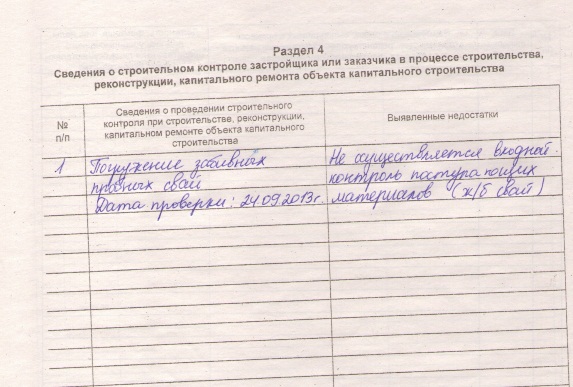 Раздел 4
Сведения о строительном контроле застройщика или заказчика в процессе строительства,
реконструкции, капитального ремонта объекта капитального строительства
№
п/п
Сведения о проведении строительного
контроля при строительстве, реконструкции,
капитальном ремонте объекта капитального
строительства
Выявленные недостатки
1 Погружение забивных
пробных свай
Дата проверки: 24.09.2013г.
Не осуществляется входной
контроль поступающих
материалов (ж/б свай)